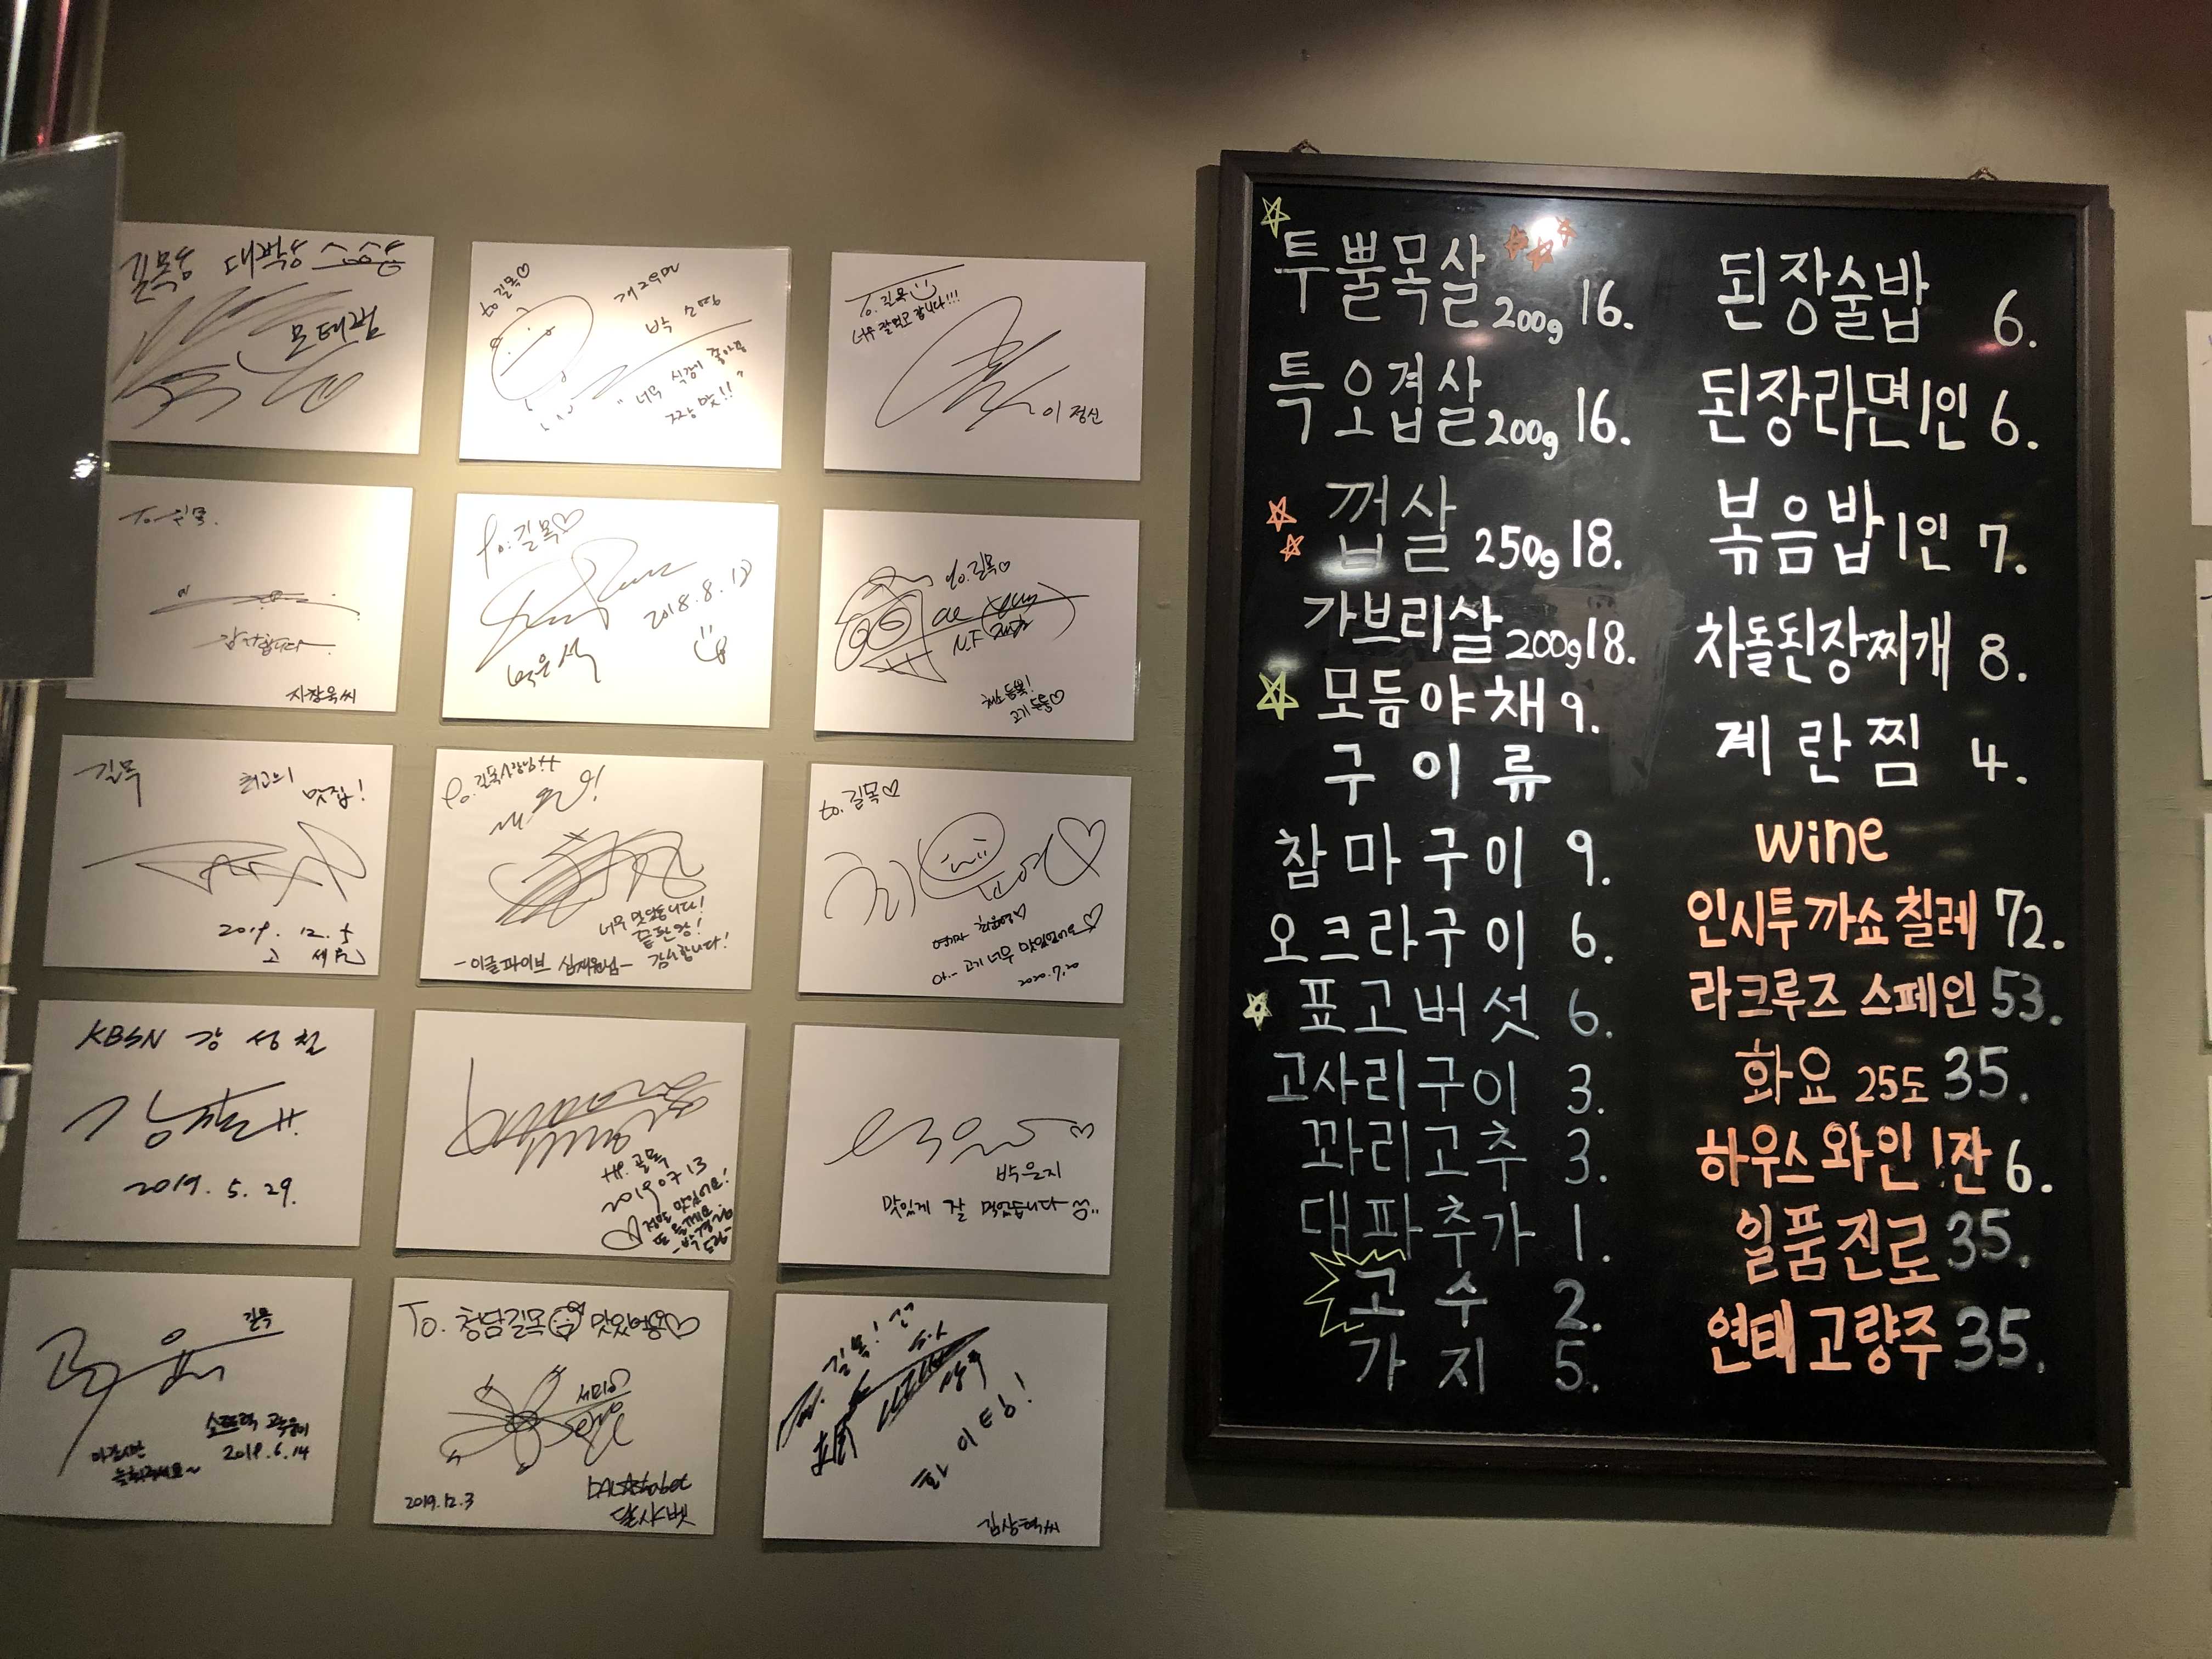 길목
대박
모태범
to 길목♡
개그우먼
박 소영
"너무 식감이 좋아요
To. 길목
너무 잘먹고 갑니다!!!
이정신
To. 길목.
감사합니다
지창욱씨
To: 길목♡
2018.8.13
박은석
to. 길목♡
N.F
채소 듬뿍!
고기 듬뿍♡
길목
최고의
맛집!
2019. 12. 5
고 세원
To. 길목사장님
너무 맛있습니다!
감사합니다!
-이글파이브 심재원님-
to. 길목♡
최윤영♡
아... 고기 너무 맛있었어요
2020.7.20
KBSN 강 성 철
2019. 5. 29.
박은지
맛있게 잘 먹었습니다
길목
2019.6.14
To. 청담길목 맛있어용♡
세미
2019.12.3
DALAShabet
달샤벳
길목!
화이팅!
김상혁씨
투뿔목살 200g 16.
특오겹살 200g 16.
껍살 250g 18.
가브리살 200g 18.
모듬야채 9.
구이류
참마구이 9.
오크라구이 6.
표고버섯 6.
고사리구이 3.
꽈리고추 3.
대파추가 1.
고수 2.
가지 5.
된장술밥 6.
된장라면1인 6.
볶음밥 1인 7.
차돌된장찌개 8.
계란찜 4.
wine
인시투 까쇼 칠레 72.
라크루즈 스페인 53.
화요 25도 35.
하우스와인 1잔 6.
일품진로 35.
연태고량주 35.